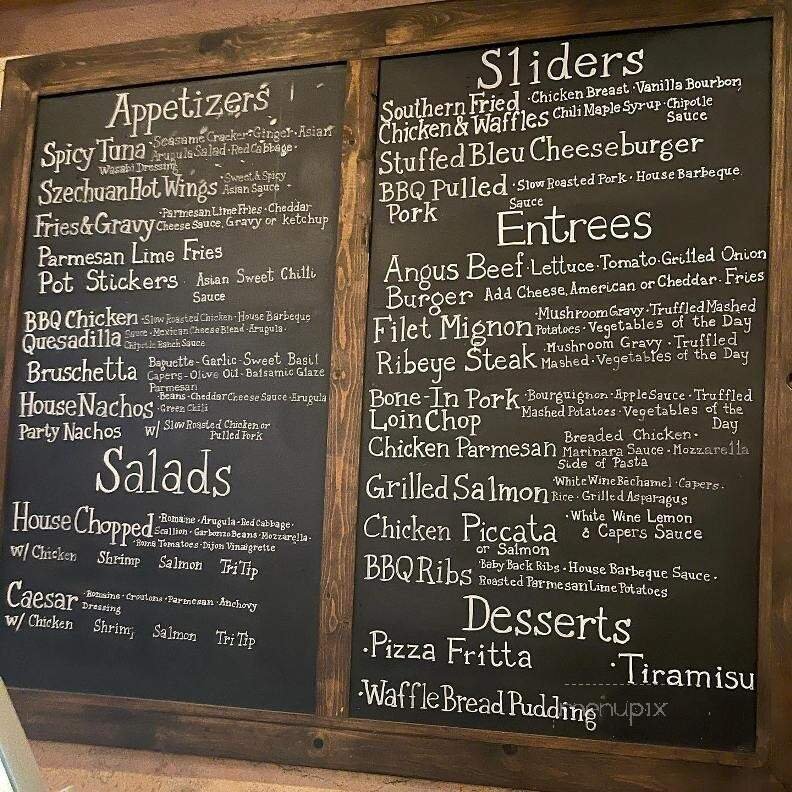 Appetizers
Spicy Tuna ·Seasame Cracker·Ginger·Asian
Arugula Salad·Red Cabbage·
Wasabi Dressing
Szechuan Hot Wings ·Sweet & Spicy
Asian Sauce·
Fries & Gravy ·Parmesan Lime Fries·Cheddar
Cheese Sauce, Gravy or ketchup
Parmesan Lime Fries
Pot Stickers Asian Sweet Chilli
Sauce
BBQ Chicken ·Slow Roasted Chicken·House Barbeque
Quesadilla Sauce·Mexican Cheese Blend·Arugula·
Chipotle Ranch Sauce
Bruschetta Baguette-Garlic-Sweet Basil
Capers-Olive Oil-Balsamic Glaze
Parmesan
House Nachos ·Beans·Cheddar Cheese Sauce·Arugula
·Green Chili
Party Nachos w/ Slow Roasted Chicken or
Pulled Pork
Salads
House Chopped ·Romaine·Arugula·Red Cabbage·
Scallion·Garbonzo Beans·Mozzarella·
·Roma Tomatoes·Dijon Vinaigrette
w/ Chicken Shrimp Salmon Tri Tip
Caesar ·Romaine·Croutons·Parmesan·Anchovy
Dressing
w/ Chicken Shrimp Salmon Tri Tip
Sliders
Southern Fried ·Chicken Breast·Vanilla Bourbon
Chicken & Waffles Chili Maple Syrup·Chipotle
Sauce
Stuffed Bleu Cheeseburger
BBQ Pulled ·Slow Roasted Pork·House Barbeque
Pork Sauce
Entrees
Angus Beef ·Lettuce·Tomato·Grilled Onion
Burger Add Cheese, American or Cheddar·Fries
Filet Mignon ·Mushroom Gravy·Truffled Mashed
Potatoes·Vegetables of the Day
Ribeye Steak ·Mushroom Gravy·Truffled
Mashed·Vegetables of the Day
Bone-In Pork ·Bourguignon·Apple Sauce·Truffled
Loin Chop Mashed Potatoes·Vegetables of the
Day
Chicken Parmesan Breaded Chicken·
Marinara Sauce·Mozzarella
Side of Pasta
Grilled Salmon ·White Wine Béchamel·Capers·
Rice·Grilled Asparagus
Chicken Piccata ·White Wine Lemon
& Capers Sauce
or Salmon
BBQ Ribs ·Baby Back Ribs·House Barbeque Sauce·
Roasted Parmesan Lime Potatoes
Desserts
·Pizza Fritta ·Tiramisu
·Waffle Bread Pudding
menupix